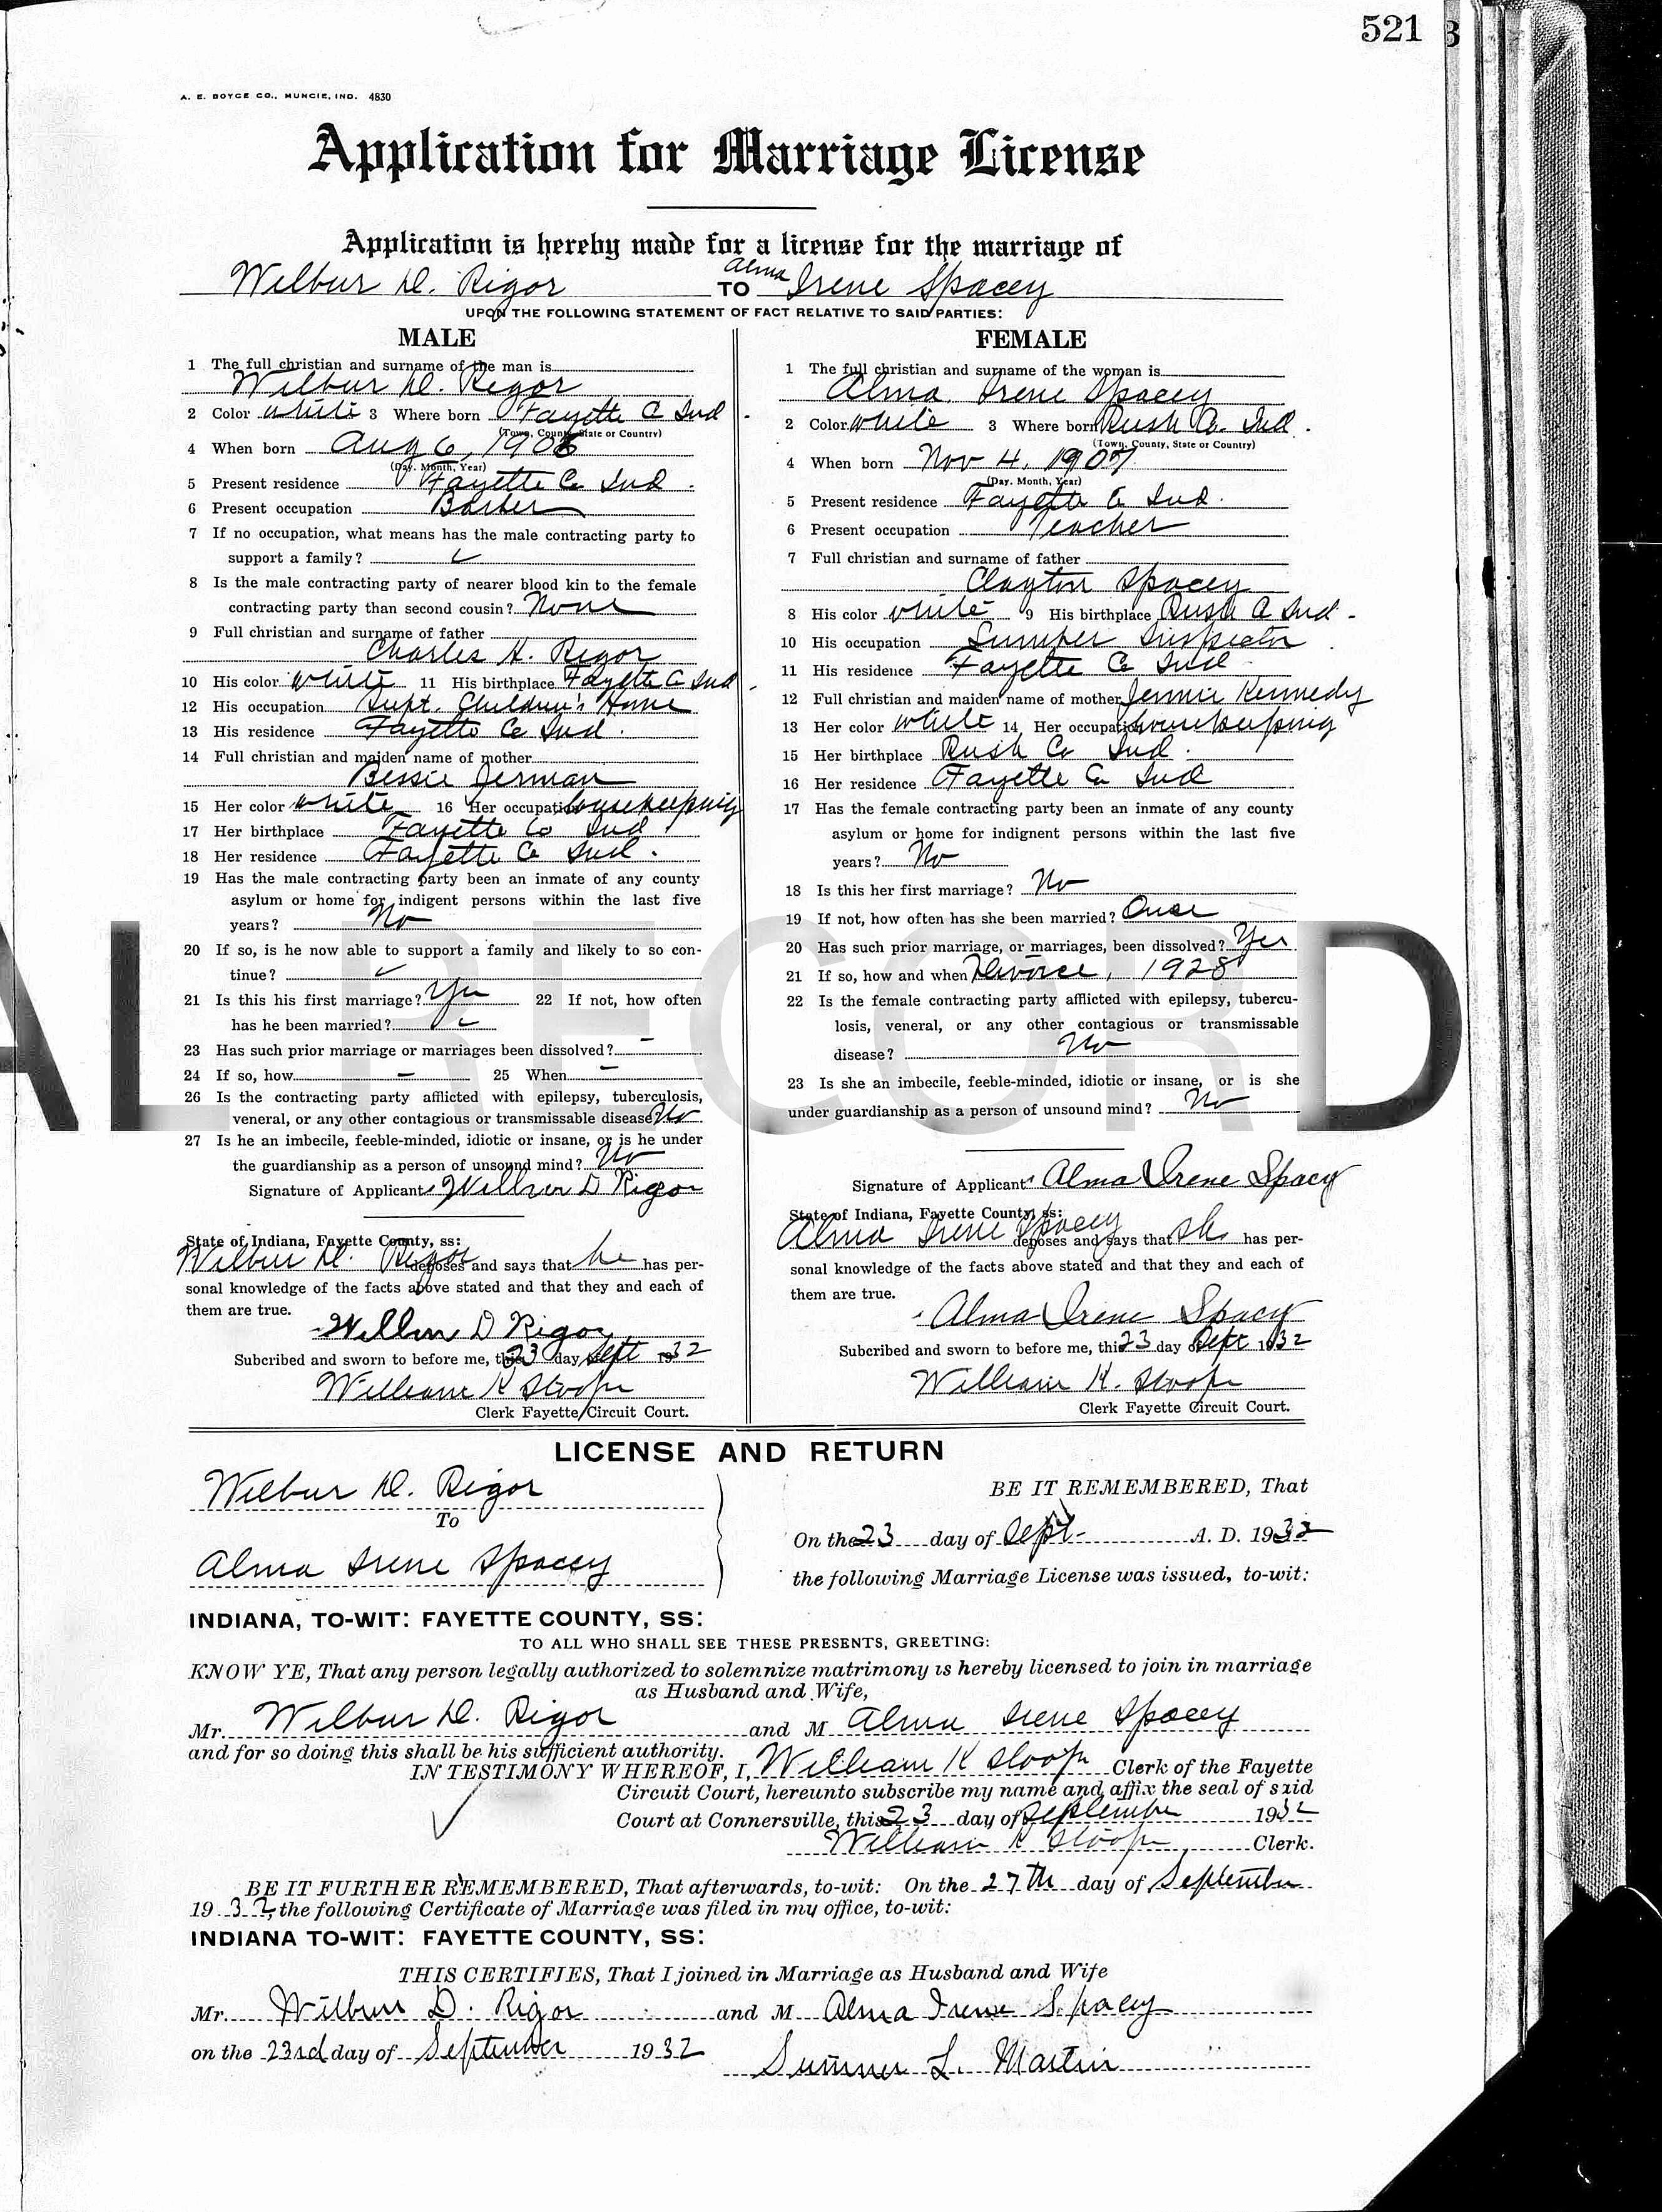 521
A. E. BOYCE CO., MUNCIE, IND. 4830
Application for Marriage License
Application is hereby made for a license for the marriage of
Wilbur D. Rigor TO Alma Irene Spacey
UPON THE FOLLOWING STATEMENT OF FACT RELATIVE TO SAID PARTIES:
MALE
1 The full christian and surname of the man is
Wilbur D. Rigor
2 Color white 3 Where born Fayette C Ind
(Town, County, State or Country)
4 When born Aug 6, 1906
(Day, Month, Year)
5 Present residence Fayette Co Ind.
6 Present occupation Barber
7 If no occupation, what means has the male contracting party to
support a family?
8 Is the male contracting party of nearer blood kin to the female
contracting party than second cousin? None
9 Full christian and surname of father
Charles H. Rigor
10 His color white 11 His birthplace Fayette C Ind
12 His occupation Supt. Children's Home
13 His residence Fayette Co Ind.
14 Full christian and maiden name of mother
Bessie Jerman
15 Her color white 16 Her occupation housekeeping
17 Her birthplace Fayette Co Ind
18 Her residence Fayette Co Ind.
19 Has the male contracting party been an inmate of any county
asylum or home for indigent persons within the last five
years? No
20 If so, is he now able to support a family and likely to so con-
tinue?
21 Is this his first marriage? Yes 22 If not, how often
has he been married?
23 Has such prior marriage or marriages been dissolved? –
24 If so, how – 25 When –
26 Is the contracting party afflicted with epilepsy, tuberculosis,
veneral, or any other contagious or transmissable disease? No
27 Is he an imbecile, feeble-minded, idiotic or insane, or is he under
the guardianship as a person of unsound mind? No
Signature of Applicant Wilbur D Rigor
State of Indiana, Fayette County, ss:
Wilbur D. Rigor deposes and says that he has per-
sonal knowledge of the facts above stated and that they and each of
them are true.
Wilbur D Rigor
Subcribed and sworn to before me, this 23 day Sept 1932
William K Stoops
Clerk Fayette Circuit Court.
FEMALE
1 The full christian and surname of the woman is
Alma Irene Spacey
2 Color white 3 Where born Rush Co. Ind.
(Town, County, State or Country)
4 When born Nov 4, 1907
(Day, Month, Year)
5 Present residence Fayette Co Ind.
6 Present occupation Teacher
7 Full christian and surname of father
Clayton Spacey
8 His color white 9 His birthplace Rush C Ind
10 His occupation Lumber Inspector
11 His residence Fayette Co Ind
12 Full christian and maiden name of mother Jennie Kennedy
13 Her color white 14 Her occupation housekeeping
15 Her birthplace Rush Co Ind.
16 Her residence Fayette Co Ind
17 Has the female contracting party been an inmate of any county
asylum or home for indignent persons within the last five
years? No
18 Is this her first marriage? No
19 If not, how often has she been married? Once
20 Has such prior marriage, or marriages, been dissolved? Yes
21 If so, how and when Divorce, 1928
22 Is the female contracting party afflicted with epilepsy, tubercu-
losis, veneral, or any other contagious or transmissable
disease? No
23 Is she an imbecile, feeble-minded, idiotic or insane, or is she
under guardianship as a person of unsound mind? No
Signature of Applicant Alma Irene Spacy
State of Indiana, Fayette County, ss:
Alma Irene Spacey deposes and says that she has per-
sonal knowledge of the facts above stated and that they and each of
them are true.
Alma Irene Spacy
Subcribed and sworn to before me, this 23 day of Sept 1932
William K. Stoops
Clerk Fayette Circuit Court.
AL RECORD
LICENSE AND RETURN
Wilbur D. Rigor
To
Alma Irene Spacey
BE IT REMEMBERED, That
On the 23 day of Sept. A. D. 1932
the following Marriage License was issued, to-wit:
INDIANA, TO-WIT: FAYETTE COUNTY, SS:
TO ALL WHO SHALL SEE THESE PRESENTS, GREETING:
KNOW YE, That any person legally authorized to solemnize matrimony is hereby licensed to join in marriage
as Husband and Wife,
Mr. Wilbur D. Rigor and M Alma Irene Spacey
and for so doing this shall be his sufficient authority.
IN TESTIMONY WHEREOF, I, William K Stoops Clerk of the Fayette
Circuit Court, hereunto subscribe my name and affix the seal of said
Court at Connersville, this 23 day of September 1932
William K Stoops Clerk.
BE IT FURTHER REMEMBERED, That afterwards, to-wit: On the 27th day of September
1932, the following Certificate of Marriage was filed in my office, to-wit:
INDIANA TO-WIT: FAYETTE COUNTY, SS:
THIS CERTIFIES, That I joined in Marriage as Husband and Wife
Mr. Wilbur D. Rigor and M Alma Irene Spacey
on the 23rd day of September 1932
Sumner L. Martin